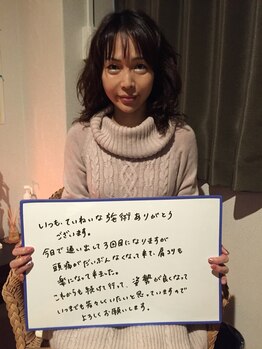 いつも、ていねいな施術ありがとう
ございます。
今日で通い出して3回目になりますが
頭痛がだいぶんなくなって来て、肩コリも
楽になって来ました。
これからも続けて行って、姿勢が良くなって
いつまでも若々しくいたいと思っていますので
よろしくお願いします。